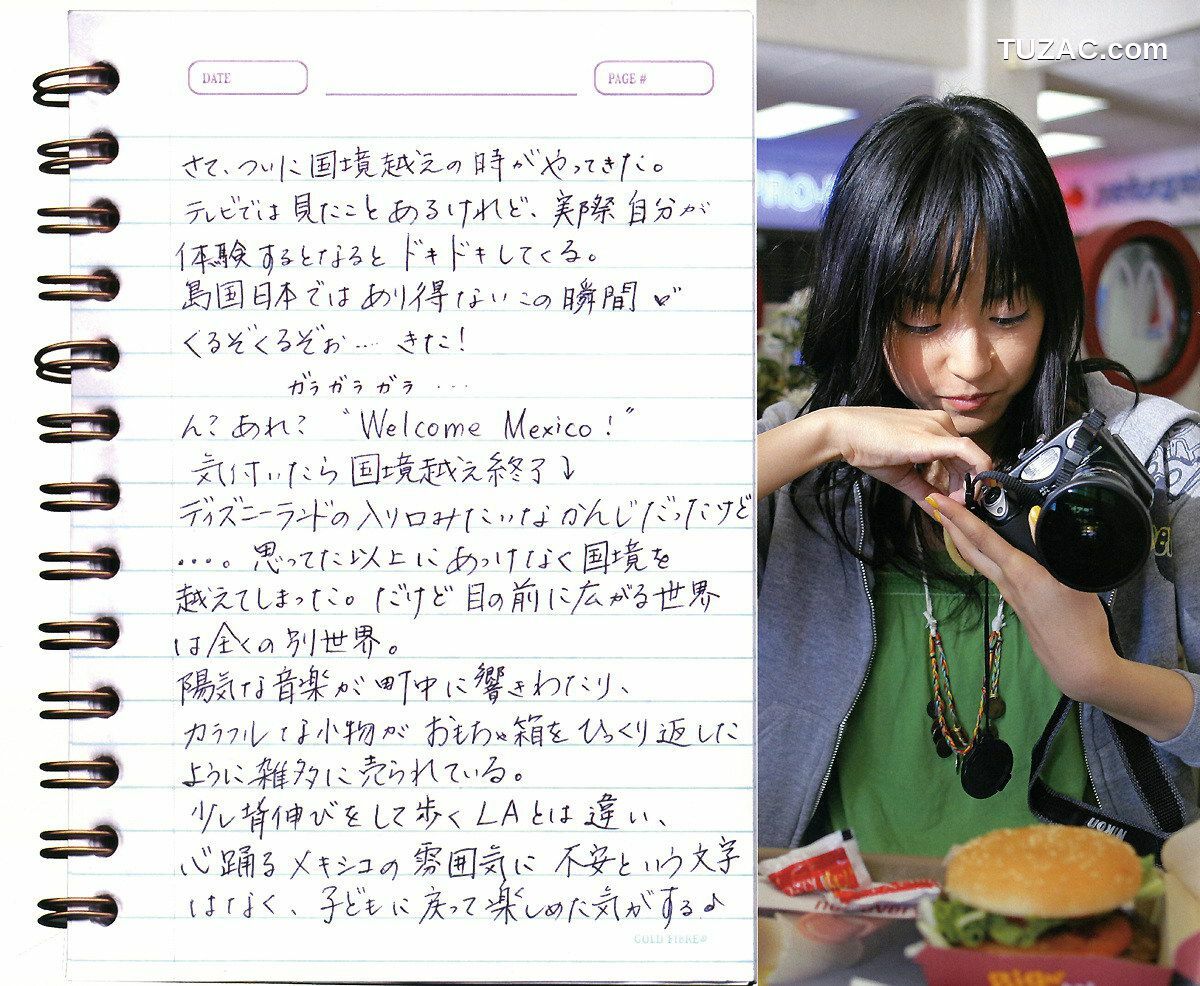 TUZAC.com
DATE
PAGE #
さて、ついに国境越えの時がやってきた。
テレビでは見たことあるけれど、実際自分が
体験するとなるとドキドキしてくる。
島国日本ではあり得ないこの瞬間♡
くるぞくるぞぉ… きた!
ガラガラガラ …
ん?あれ? “Welcome Mexico!”
気付いたら国境越え終了↓
ディズニーランドの入り口みたいなかんじだったけど
…。思ってた以上にあっけなく国境を
越えてしまった。だけど目の前に広がる世界
は全くの別世界。
陽気な音楽が町中に響きわたり、
カラフルな小物がおもちゃ箱をひっくり返した
ように雑多に売られている。
少し背伸びをして歩くLAとは違い、
心踊るメキシコの雰囲気に不安という文字
はなく、子どもに戻って楽しめた気がする♪
GOLD FIBRE®
NIKON